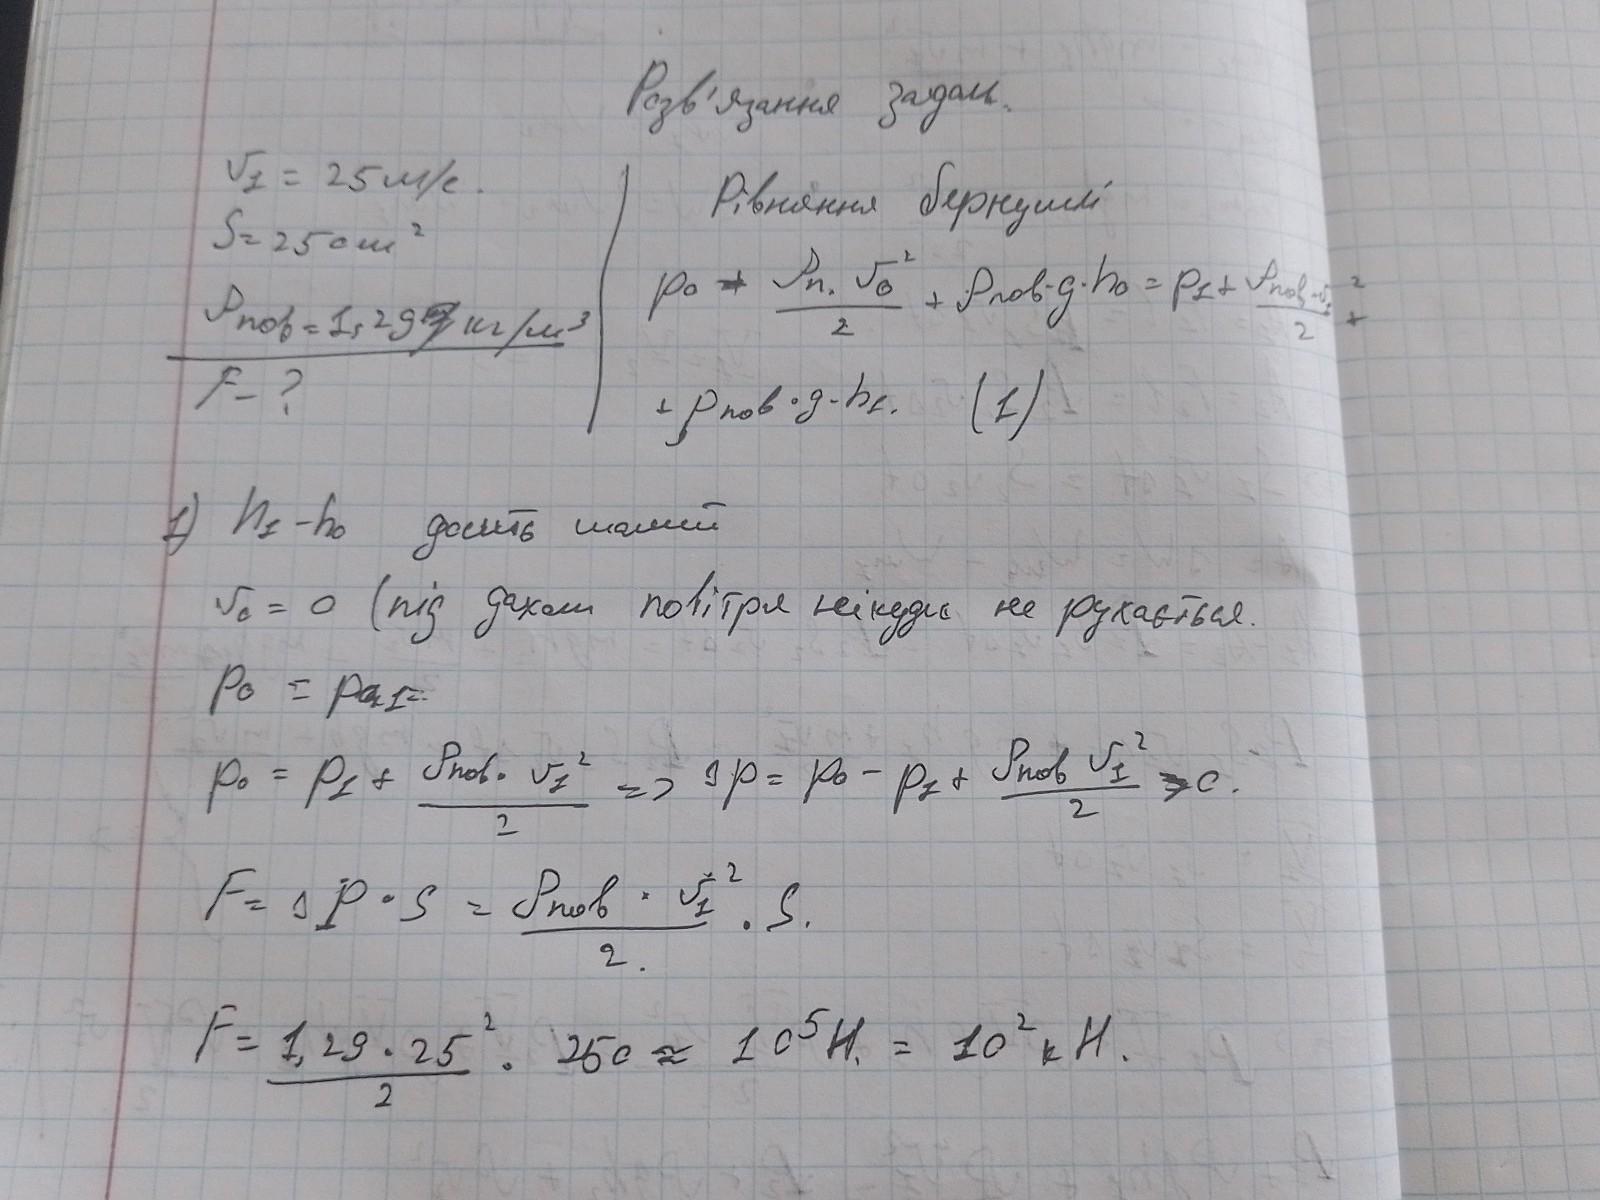 Розв'язання задач.
v₁ = 25 м/с.
S = 250 м²
ρпов = 1,29 кг/м³
F - ?
Рівняння Бернуллі
p₀ + ρп. v₀²/2 + ρпов·g·h₀ = p₁ + ρпов·v₁²/2 +
+ ρпов·g·h₁. (1)
1) h₁ - h₀ досить малий
v₀ = 0 (під дахом повітря нікуди не рухається.
p₀ =
p₀ = p₁ + ρпов·v₁²/2 => Δp = p₀ - p₁ + ρпов v₁²/2 > 0.
F = ΔP·S = ρпов·v₁²/2 · S.
F = 1,29·25²/2 · 250 ≈ 10⁵ Н. = 10² кН.